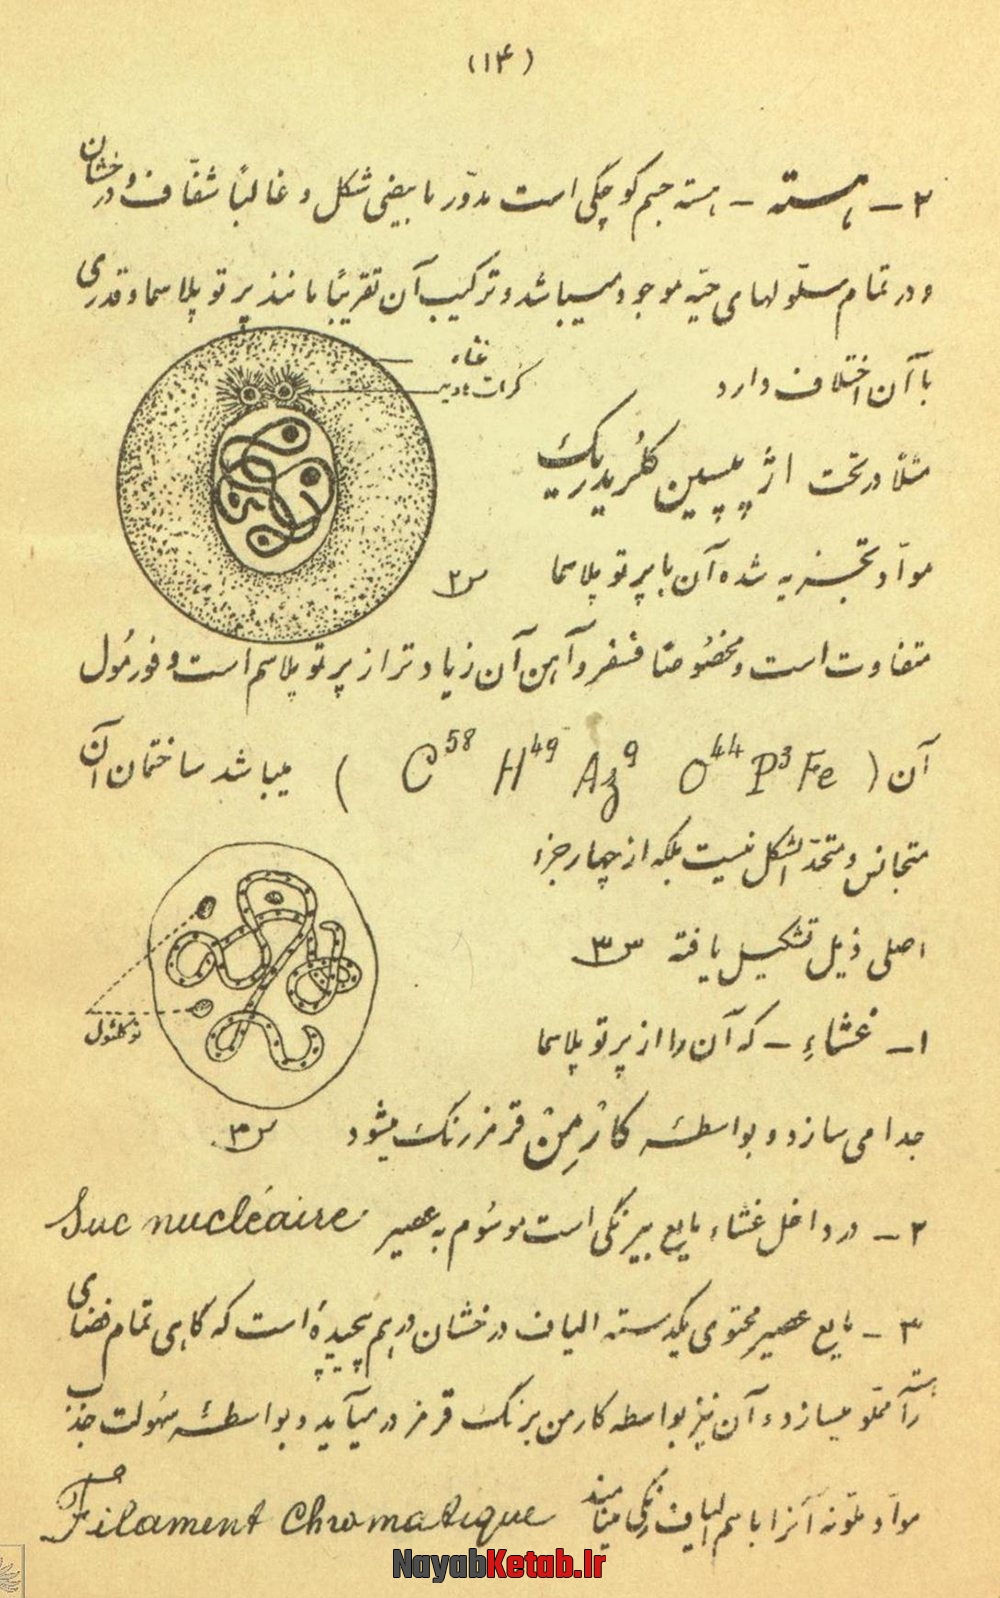 (۱۴)
۲ - هسته - هسته جسم کوچکی است مدوّر یا بیضی شکل و غالباً شفّاف و درخشان
و در تمام سلّولهای حیّه موجود میباشد و ترکیب آن تقریباً مانند پرتوپلاسما و قدری
با آن اختلاف دارد
غشاء
کرات هادیه
مثلاً در تحت اثر پپسین کلریدریک
موادّ تجزیه شده آن با پرتوپلاسما
س۲
متفاوت است و مخصُوصاً فسفر و آهن آن زیادتر از پرتوپلاسم است و فورمُول
آن ( C58 H49 Az9 O44 P3 Fe ) میباشد ساختمان آن
متجانس و متحدّ الشکل نیست بلکه از چهار جزء
اصلی ذیل تشکیل یافته س۳
نوکلئول
۱ - غشاءِ - که آن را از پرتوپلاسما
جدا می سازد و بواسطهٔ کارْمِنْ قرمز رنگ میشود
س۳
۲ - در داخل غشاء مایع بیرنگی است موسُوم به عصیر Suc nucléaire
۳ - مایع عصیر محتوی یکدسته الیاف درخشان درهم پیچیدهٔ است که گاهی تمام فضای
هسته را مملّو میسازد و آن نیز بواسطه کارمن برنگ قرمز در میآید و بواسطهٔ سهُولت جذب
موادّ ملوّنه آنرا باسم الیاف رنگی مینامند Filament Chromatique
NayabKetab.Ir